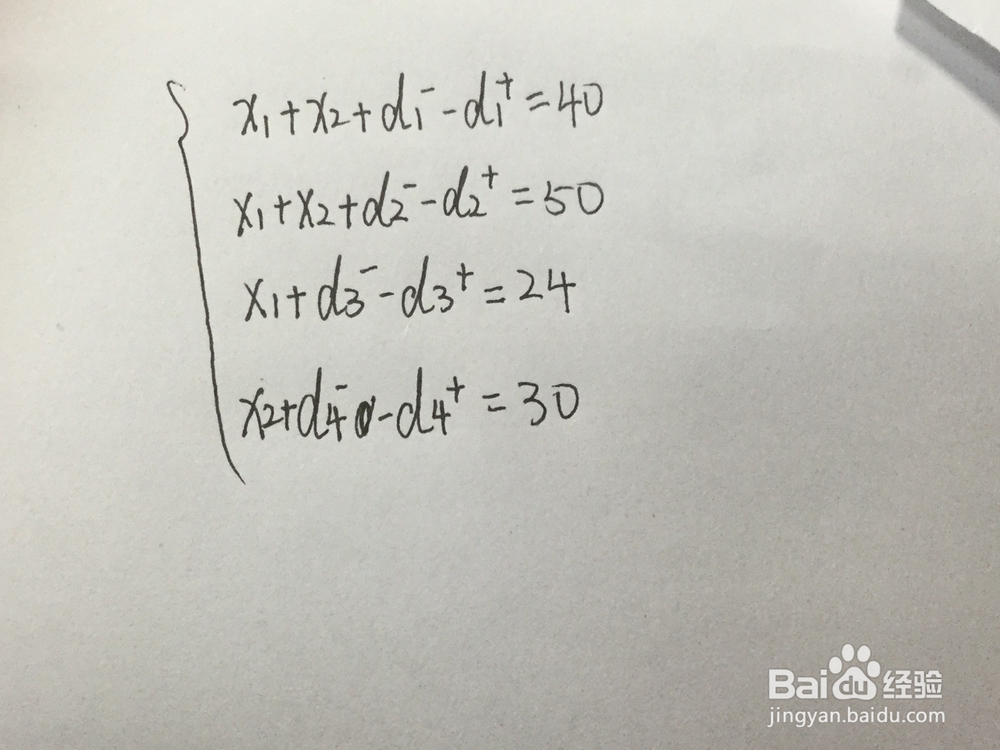 x₁+x₂+d₁⁻-d₁⁺=40
x₁+x₂+d₂⁻-d₂⁺=50
x₁+d₃⁻-d₃⁺=24
x₂+d₄⁻-d₄⁺=30
Baidu 经验
jingyan.baidu.com